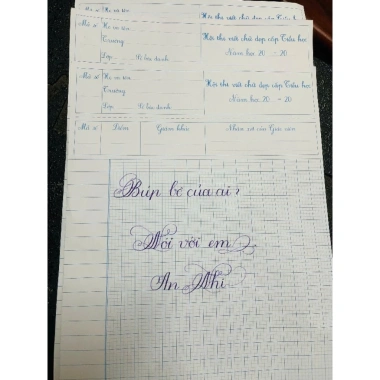 Họ và tên
Hội thi viết chữ đẹp cấp Tiểu học
Trường
Năm học 20 - 20
Lớp Số báo danh
Mã số Họ và tên
Hội thi viết chữ đẹp cấp Tiểu học
Trường
Năm học 20 - 20
Lớp Số báo danh
Mã số Điểm Giám khảo Nhận xét của Giáo viên
Búp bê của ai?
Nói với em
An Nhi